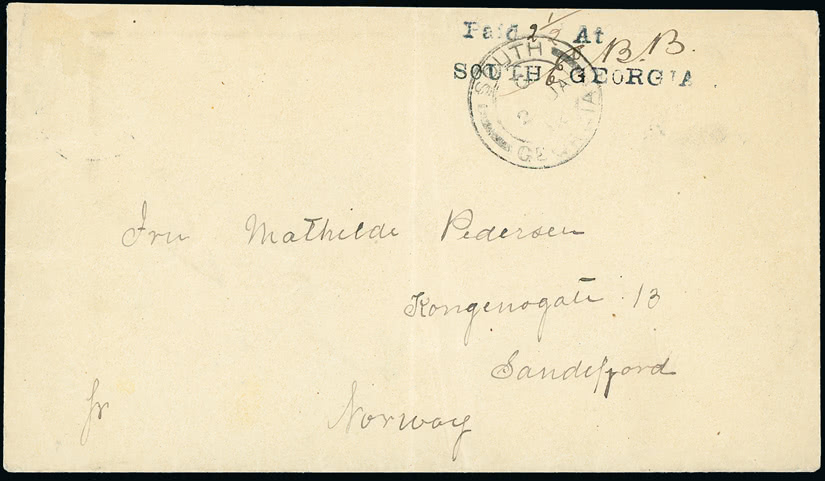 Paid 2½ At
B.B.
SOUTH GEORGIA
SOUTH GEORGIA
JA
Fru Mathilde Pedersen
Kongensgate 13
Sandefjord
Norway